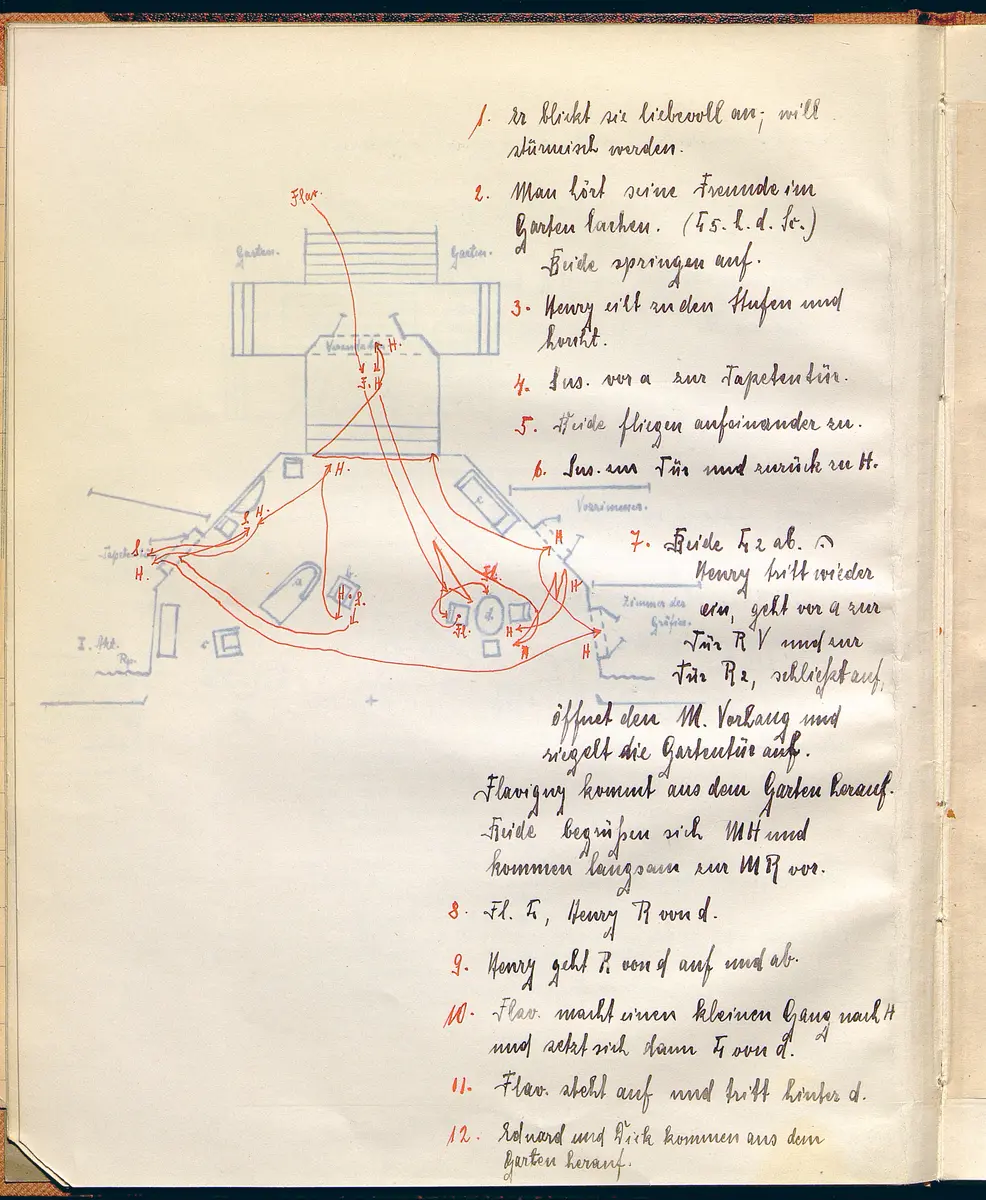 1. Er blickt sie liebevoll an; will
stürmisch werden.
2. Man hört seine Freunde im
Garten lachen. (L 5. h. d. Sc.)
Beide springen auf.
3. Henry eilt zu den Stufen und
horcht.
4. Sus. vor a zur Tapetentür.
5. Beide fliegen aufeinander zu.
6. Sus. zur Tür und zurück zu H.
7. Beide L 2 ab.
Henry tritt wieder
ein, geht vor a zur
Tür R V und zur
Tür R 2, schließt auf,
öffnet den M. Vorhang und
riegelt die Gartentür auf.
Flavigny kommt aus dem Garten herauf.
Beide begrüßen sich MH und
kommen langsam zur MR vor.
8. Fl. L, Henry R von d.
9. Henry geht R von d auf und ab.
10. Flav. macht einen kleinen Gang nach H
und setzt sich dann L von d.
11. Flav. steht auf und tritt hinter d.
12. Eduard und Dick kommen aus dem
Garten herauf.
Flav.
Garten.
Garten.
H.
F. H
H.
S. H.
S.
H.
a
b
H. S.
c
d
e
Fl.
Fl.
H
H
H
H
H
Vorzimmer.
Zimmer der
Gräfin.
I. Akt.